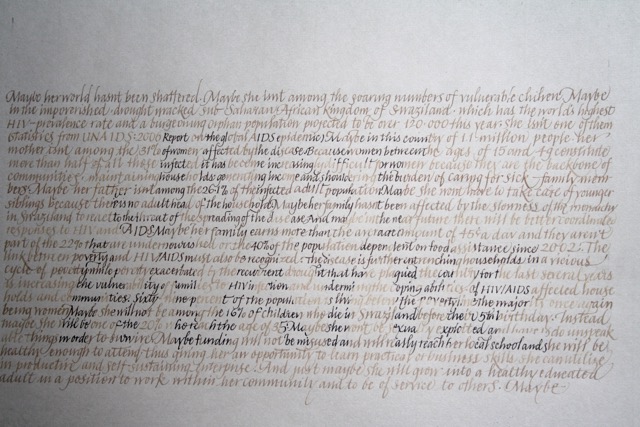 Maybe her world hasnt been shattered. Maybe she isnt among the soaring numbers of vulnerable children. Maybe
in the impoverished drought wracked sub-Saharan African kingdom of Swaziland – which has the worlds highest
HIV-prevalence rate and a burgeoning orphan population projected to be over 120 000 this year. She isnt one of them
statistics from UNAIDS 2006 Report on the global AIDS epidemic) Maybe in this country of 1.1 million people her
mother isnt among the 31% of women affected by the disease. Because women between the ages of 15 and 49 constitute
more than half of all those infected it has become increasingly because they are the backbone of
communities, maintaining households generating income and shouldering the burden of caring for sick family mem
bers. Maybe her father isnt among the 26.7% of the infected adult population. Maybe she wont have to take care of younger
siblings because there is no adult head of the household. Maybe her family hasnt been affected by the slowness of the monarchy
in Swaziland to react to the threat of the spreading of the disease. And maybe in the near future there will be better coordinated
responses to HIV and AIDS. Maybe her family earns more than the average amount of 45¢ a day and they arent
part of the 22% that are undernourished or the 40% of the population dependent on food assistance since 2002. The
link between poverty and HIV/AIDS must also be recognized: the disease is further entrenching households in a vicious
cycle of poverty while poverty exacerbated by recurrent drought that has plagued the country for the last several years
is increasing the vulnerability of families to HIV infection and undermining coping abilities of HIV/AIDS affected house
holds and communities. Sixty percent of the population living below the poverty line the major
being women. Maybe she will not be among the 16% of children who die in Swaziland before their 5th birthday. Instead
maybe she will be one of the 20% who reach the age of 35. Maybe she wont be sexually exploited and do unspeak
able things in order to survive. Maybe funding will not be misused and will really reach her local school and she will be
healthy enough to attend thus giving her an opportunity to learn practical or business skills she can utilize
in productive and self-sustaining enterprise. And just maybe she will grow into a healthy educated
adult in a position to work within her community and to be of service to others. Maybe–